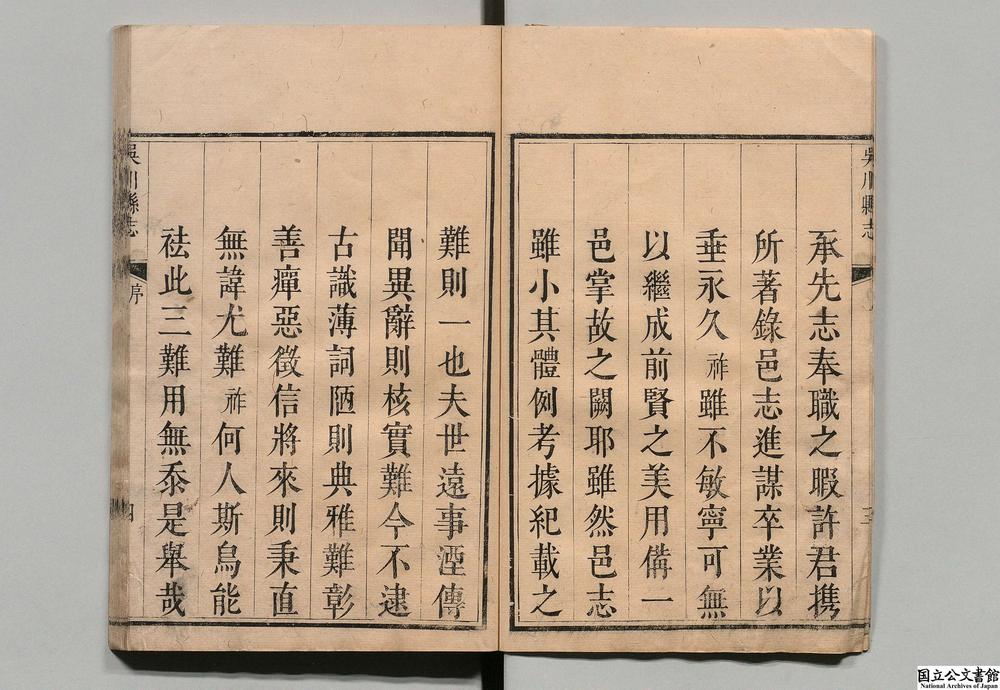 吳川縣志
承先志奉職之暇許君携
所著錄邑志進謀卒業以
垂永久祚雖不敏寧可無
以繼成前賢之美用備一
邑掌故之闕耶雖然邑志
雖小其體例考據紀載之
難則一也夫世遠事湮傳
聞異辭則核實難今不逮
古識薄詞陋則典雅難彰
善癉惡徵信將來則秉直
無諱尤難祚何人斯烏能
袪此三難用無忝是舉哉
吳川縣志
序
四
国立公文書館
National Archives of Japan